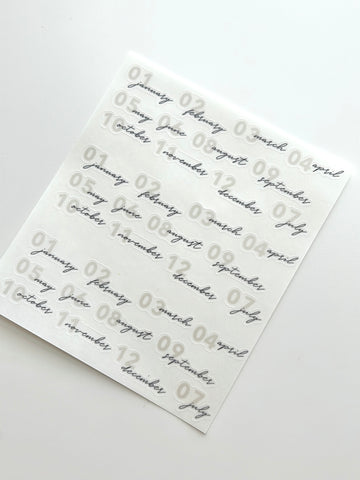 01 january 02 february 03 march 04 april
05 may 06 june 08 august 09 september
10 october 11 november 12 december 07 july
01 january 02 february 03 march 04 april
05 may 06 june 08 august 09 september
10 october 11 november 12 december 07 july
01 january 02 february 03 march 04 april
05 may 06 june 08 august 09 september
10 october 11 november 12 december 07 july